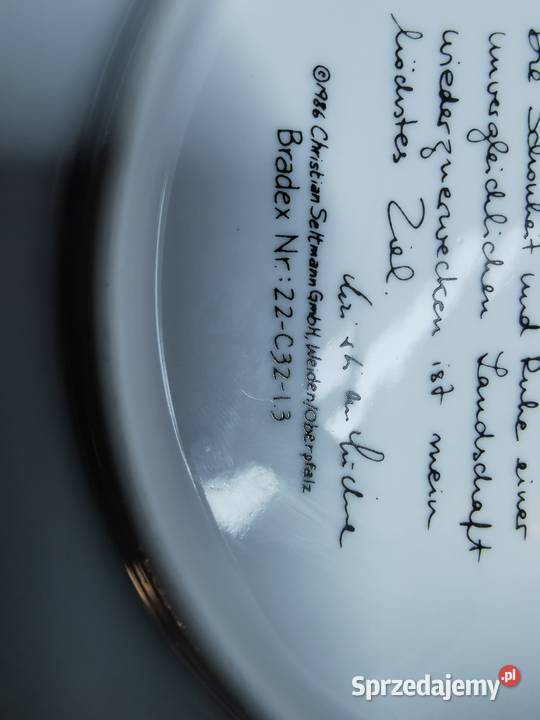 Die Schönheit und Ruhe einer
unvergleichlichen Landschaft
wiederzuerwecken ist mein
höchstes Ziel.
©1986 Christian Seltmann GmbH, Weiden/Oberpfalz
Bradex Nr.: 22-C32-1.3
Sprzedajemy.pl